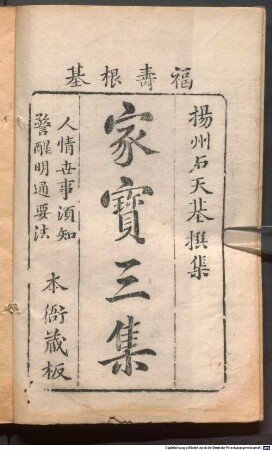 福壽根基
揚州石天基撰集
家寶三集
人情世事須知
警醒明通要法
本衙藏板